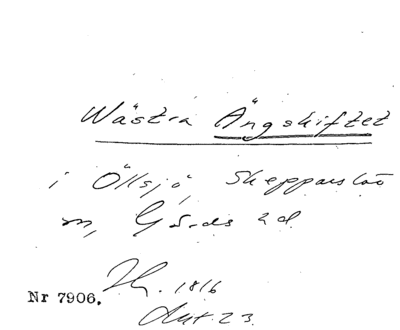 Wästra Ängskiftet
i Öllsjö, Skepparslöv
m, Gärds hd
Nr 7906.
1816